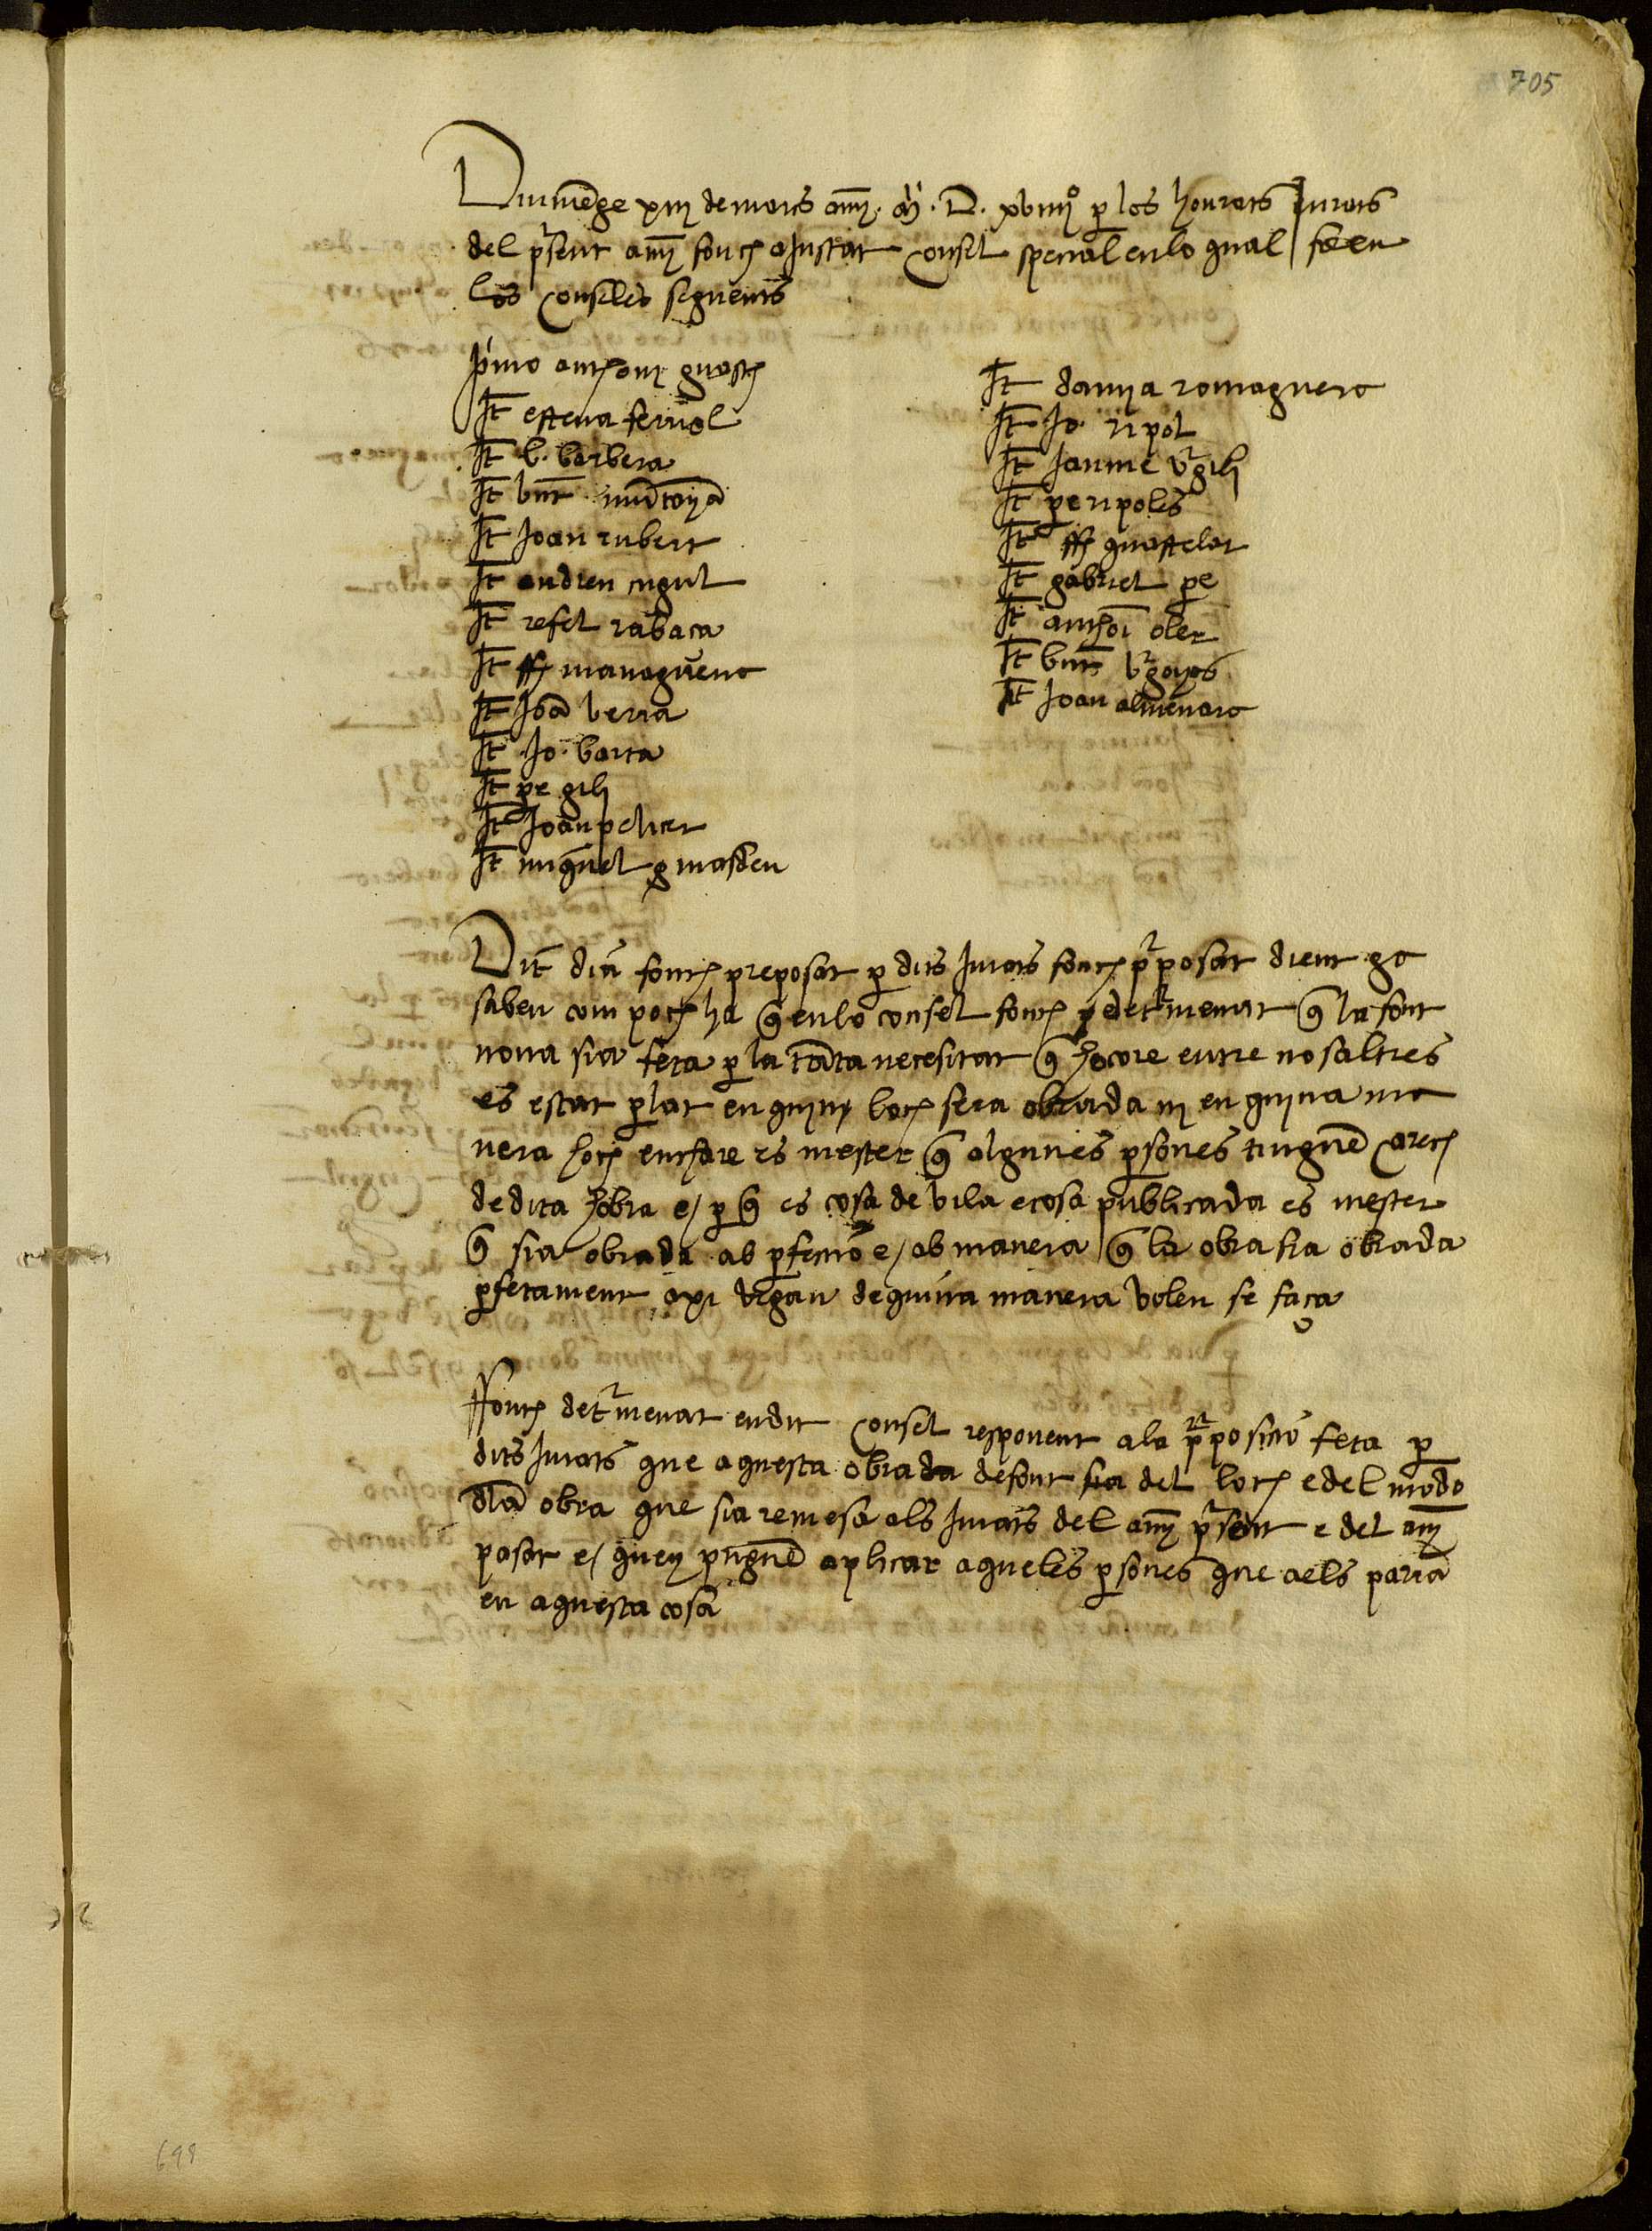 705
Diumēge xiij de mars añy · M · D · xviiijº p los honrats Jurats
del psent añy fonch aJustat consel special en lo qual foren
los conselés seguents
pimo anthoni guasch
It esteva ferriol
It b. barbera
It bnt muntoyā
It Joan rubert
It andreu cugul
It rafel rabaca
It ff managuera
It Joā verra
It Jo. barta
It pe gili
It Joan pelicer
It miquel g masdeu
It damia romaguera
It Jo. ripol
It Jaume vgili
It pe ripolés
It ff guastelar
It gabriel pe
It anthoi oler
It bnt vgayos
It Joan almenara
Dit dia fonch preposat p dits Jurats fonch pposat dient ya
saben com poch ha q en lo consel fonch p detmenat q la font
nova sia feta p la tāta necesitat q hocore entre nosaltres
es estat plat en quiny loch sera obrada ni en quina ma
nera hoch encare es mester q algunes psones tinguē carech
de dita hobra e/ p q es cosa de vila e cosa publicada es mester
q sia obrada ab pfectio e/ ab manera q la obra sia obrada
pfetament axi vegan de quina manera volen se faça
ffonch detmenat en dit consel responent a la pposicio feta p
dits Jurats que aquesta obrada de font sia del loch e del modo
dla obra que sia remesa als Jurats del añy psent e del añy
pasat e/ quey puguē aplicar aqueles psones que a els pariā
en aquesta cosa
698